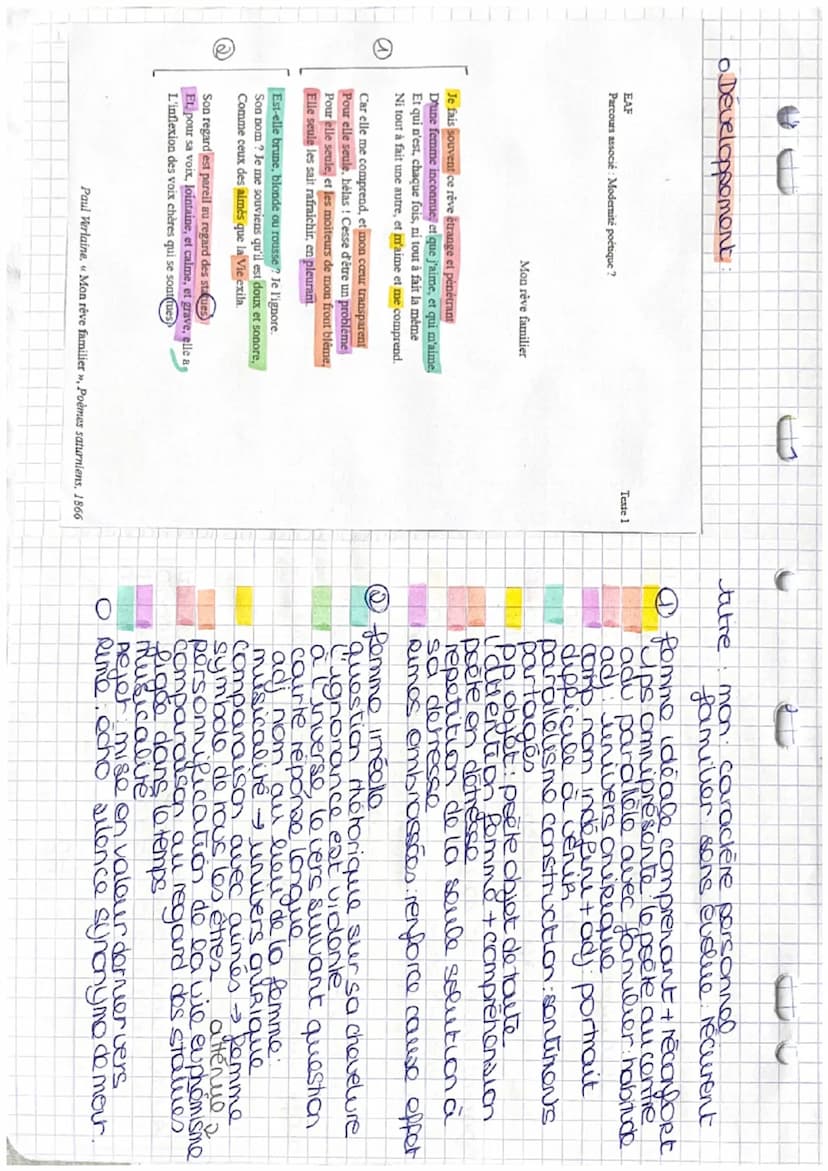 o Développement :
EAF
Parcours associé : Modernité poétique ?
Texte 1
Mon rêve familier
①
Je fais souvent ce rêve étrange et pénétrant
D'une femme inconnue, et que j'aime, et qui m'aime,
Et qui n'est, chaque fois, ni tout à fait la même
Ni tout à fait une autre, et m'aime et me comprend.
Car elle me comprend, et mon cœur transparent
Pour elle seule, hélas ! Cesse d'être un problème
Pour elle seule, et les moiteurs de mon front blême,
Elle seule les sait rafraîchir, en pleurant.
②
Est-elle brune, blonde ou rousse ? Je l'ignore.
Son nom ? Je me souviens qu'il est doux et sonore,
Comme ceux des aimés que la Vie exila.
Son regard est pareil au regard des statues,
Et, pour sa voix, lointaine, et calme, et grave, elle a
L'inflexion des voix chères qui se sont tues.
Paul Verlaine, « Mon rêve familier », Poèmes saturniens, 1866
titre : mon : caractère personnel
familier sans évolué : récurent
① femme idéale comprenant + réconfort
1ps omniprésente : le poète au centre
adv parallèle avec familier : habitude
adj : univers onirique
comp nom indéfini + adj : portrait
difficile à venir
parallélisme construction : sentiments
partagés
pp objet : poète objet de toute
l'attention femme + compréhension
poète en détresse
repetition de la seule solution à
sa détresse
rimes embrassées : renforce cause effet
② femme iréelle
question rhétorique sur sa chevelure
l'ignorance est violente
à l'inverse le vers suivant question
courte réponse longue
adj nom au lieu de la femme :
musicalité → univers onirique
comparaison avec aimés → femme
symbole de tous les êtres
personnification de la vie euphémisme atténue
comparaison au regard des statues
figée dans le temps
musicalité
rejet : mise en valeur dernier vers
O rime : écho silence synonyme de mour.